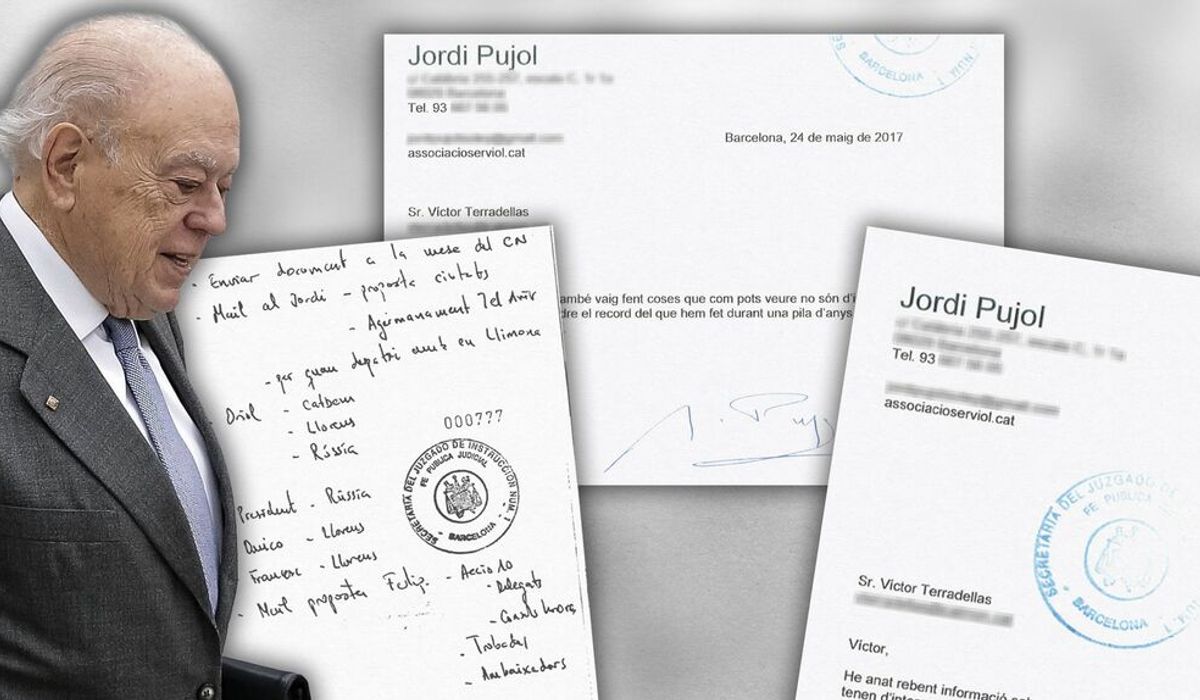 Jordi Pujol
Tel. 93
associacioserviol.cat
BARCELONA
Barcelona, 24 de maig de 2017
Sr. Víctor Terradellas
ambé vaig fent coses que com pots veure no són d'i
dre el record del que hem fet durant una pila d'anys
- Enviar document a la mesa del CN
- Mail al Jordi - proposta ciutats
- Agermanament 7el Aniv
- per quan depatri amb en Llimona
Oriol - Catbem
- Llorens
- Rússia
000777
SECRETARIA DEL JUZGADO DE INSTRUCCIÓN NUM. 1
FE PUBLICA JUDICIAL
- BARCELONA -
President - Rússia
- Llorens
Francesc - Llorens
- Mail proposta Felip. - Acció 10
- Delegats
- Trobada
- Ambaixadors
Jordi Pujol
Tel. 93
associacioserviol.cat
SECRETARIA DEL JUZGADO DE
FE PUBLICA
BARCELONA
Sr. Victor Terradellas
Víctor,
He anat rebent informació
tenen d'inte